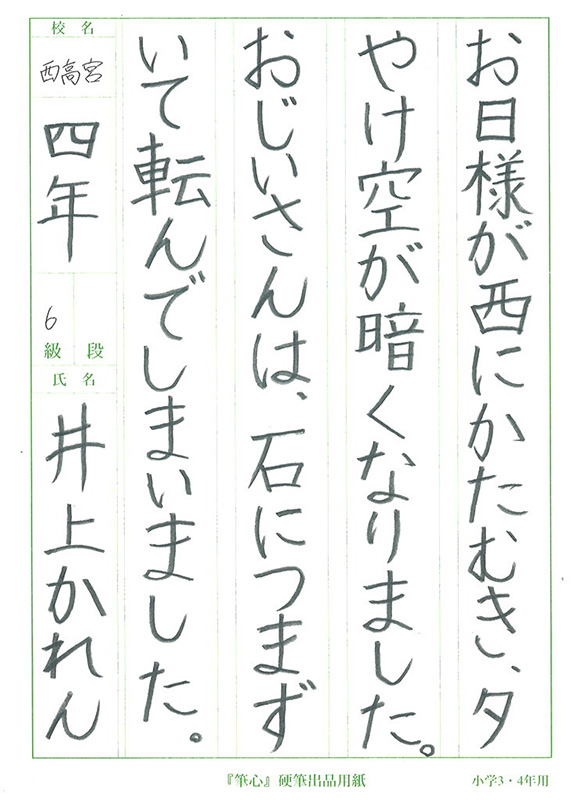 お日様が西にかたむき、夕
やけ空が暗くなりました。
おじいさんは、石につまず
いて転んでしまいました。
校名
西高宮
四年
6
級 段
氏名
井上かれん
『筆心』硬筆出品用紙
小学3・4年用